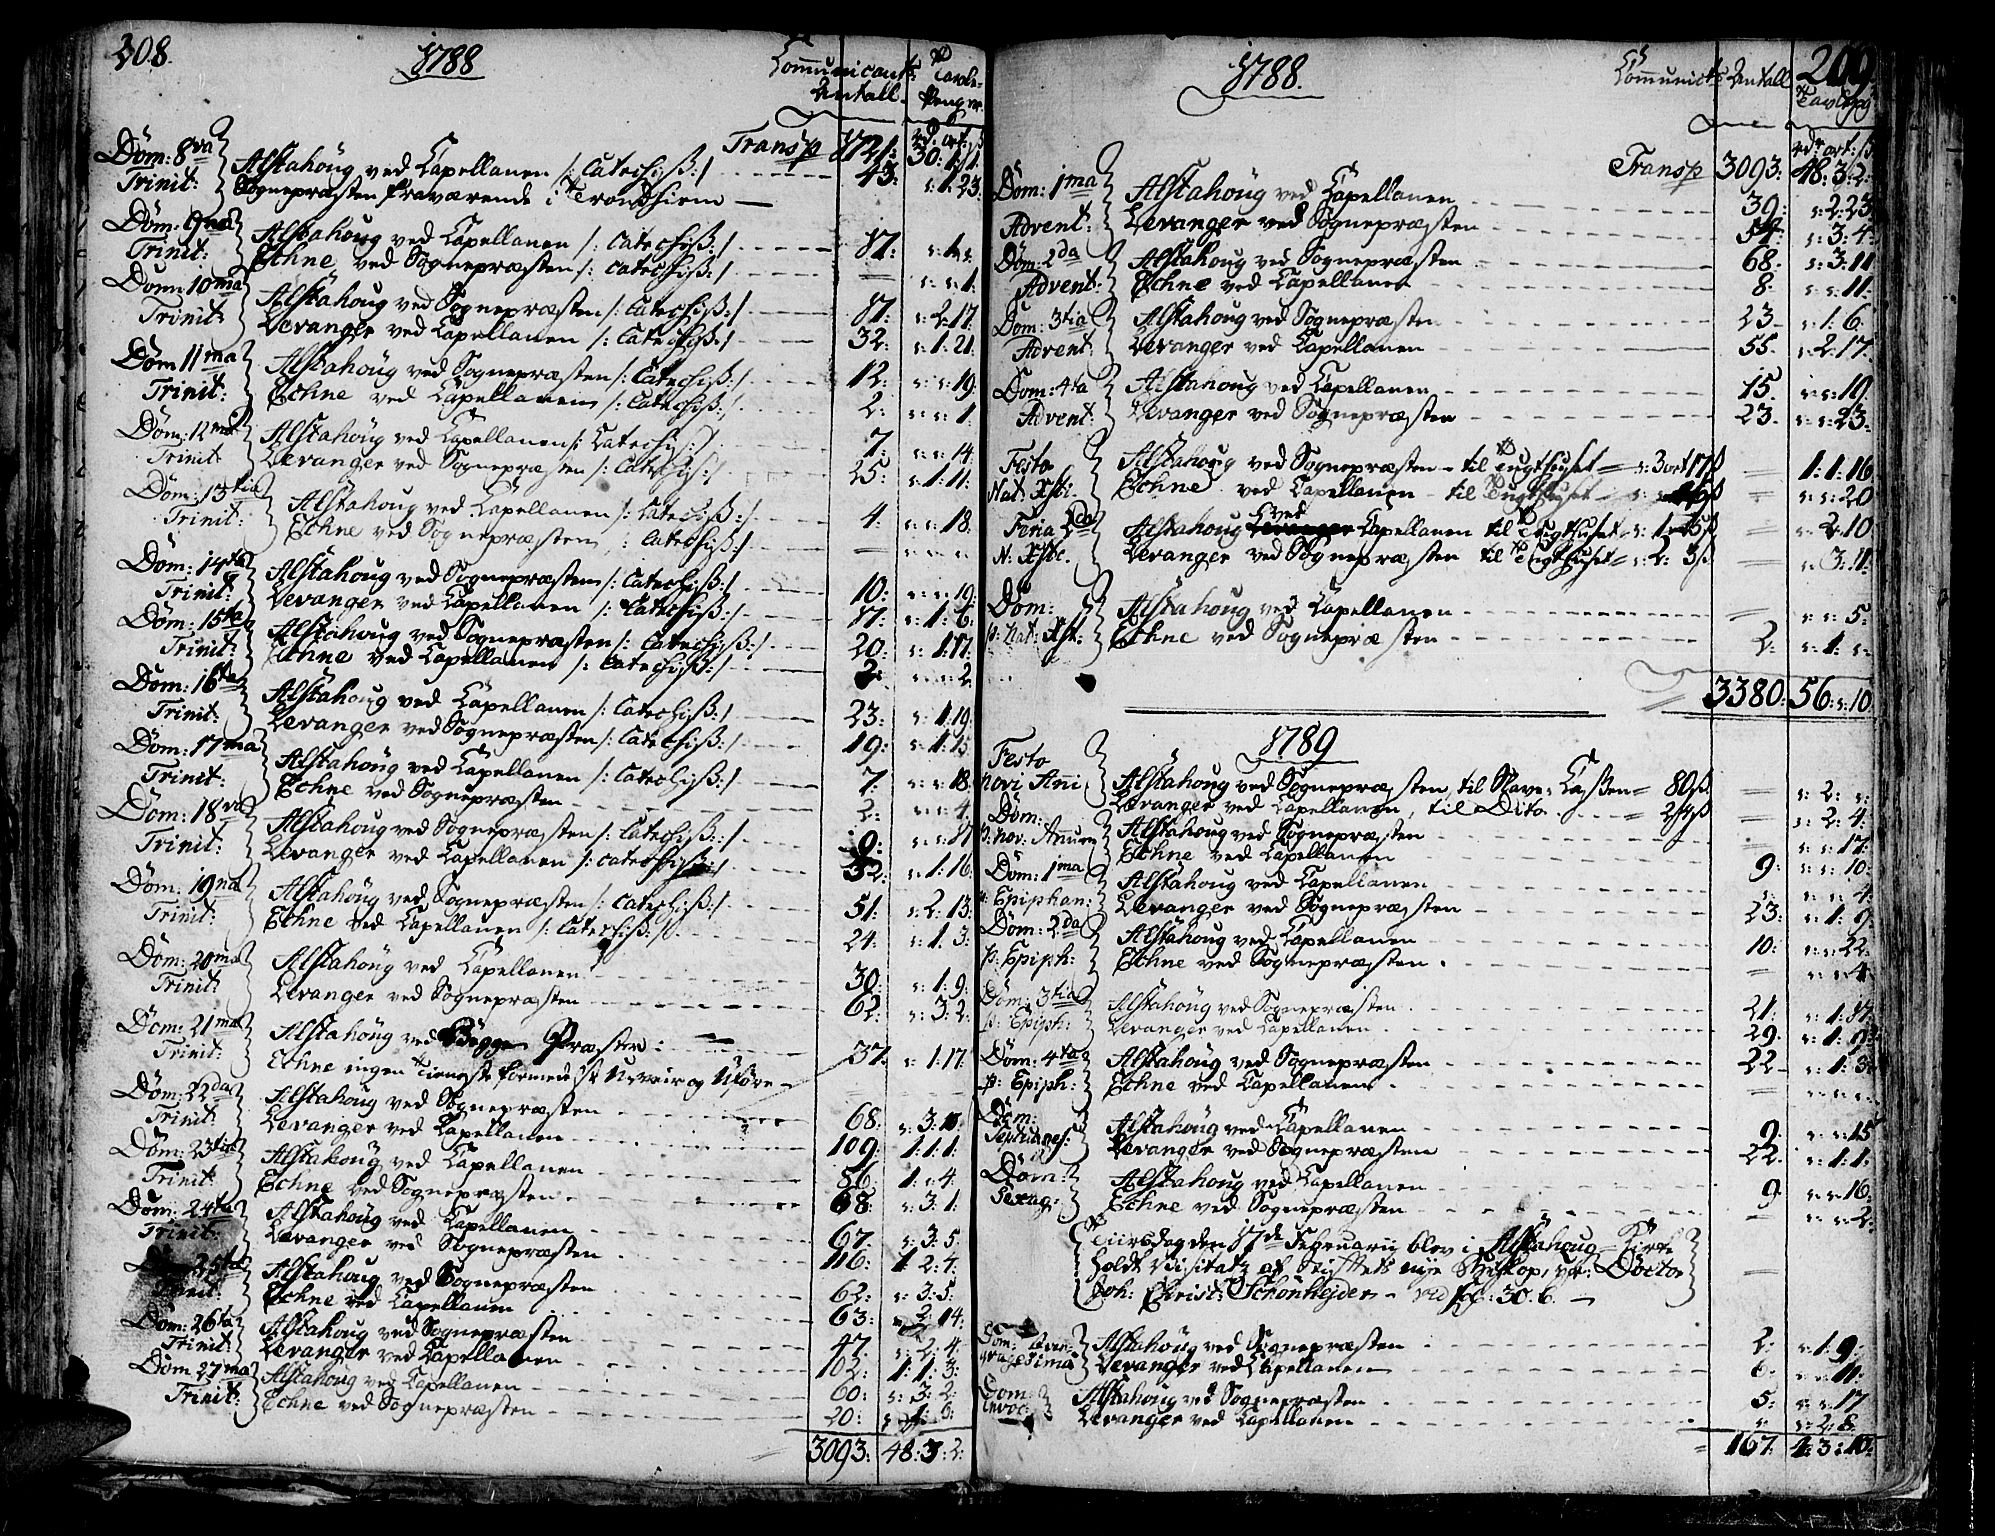 208. 1788 Communicant: Antall. Tavle-Penge
Transp 1721: 30:1:1.
Dom: 8va Trinit: Alstahoug ved Capellanen /: Catechiß:/ 43: s:1:23.
Sognepræsten fraværende i Trondhiem
Dom: 9na Trinit: Alstahoug ved Capellanen /: Catechiß:/ 17:
Echne ved Sognepræsten /: Catechiß:/ s:s:1.
Dom: 10ma Trinit: Alstahoug ved Sognepræsten /: Catechiß:/ 17: s:2:17.
Levanger ved Capellanen /: Catechiß:/ 32: s:1:21.
Dom 11ma Trinit: Alstahoug ved Sognepræsten /: Catechiß:/ 12: s:s:19.
Echne ved Capellanen /: Catechiß:/ 2: s:s:1
Dom: 12ma Trinit: Alstahoug ved Capellanen /: Catechiß:/ 7: s:s:14.
Levanger ved Sognepræsten /: Catechiß:/ 25: s:1:11.
Dom: 13tia Trinit: Alstahoug ved Capellanen /: Catechiß:/ 4: s:s:18.
Echne ved Sognepræsten /: Catechiß:/
Dom: 14ta Trinit: Alstahoug ved Sognepræsten /: Catechiß:/ 10: s:s:19.
Levanger ved Capellanen /: Catechiß:/ 17: s:1:6.
Dom: 15te Trinit: Alstahoug ved Sognepræsten /: Catechiß:/ 20: s:1:17.
Echne ved Capellanen /: Catechiß:/ 2: s:s:2.
Dom: 16ta Trinit: Alstahoug ved Capellanen /: Catechiß:/ 23: s:1:19.
Levanger ved Sognepræsten /: Catechiß:/ 19: s:1:15.
Dom: 17ma Trinit: Alstahoug ved Capellanen /: Catechiß:/ 7: s:s:18.
Echne ved Sognepræsten 2: s:s:4.
Dom: 18va Trinit: Alstahoug ved Sognepræsten /: Catechiß:/ 9: s:s:17
Levanger ved Capellanen /: Catechiß:/ 32: s:1:16.
Dom: 19na Trinit: Alstahoug ved Sognepræsten /: Catechiß:/ 51: s:2:13.
Echne ved Capellanen /: Catechiß:/ 24: s:1:3.
Dom: 20ma Trinit: Alstahoug ved Capellanen 30: s:1:9.
Levanger ved Sognepræsten 62: s:3:2.
Dom: 21ma Trinit: Alstahoug ved Begge Præster: 37. s:1:17.
Echne ingen Tieneste formedelst Uveir og Uføre
Dom: 22da Trinit: Alstahoug ved Sognepræsten 68: s:3:
Levanger ved Capellanen 109: 1:1:1.
Dom: 23tia Trinit: Alstahoug ved Capellanen 56: 1:s:4.
Echne ved Sognepræsten 68: s:3:1.
Dom: 24ta Trinit: Alstahoug ved Capellanen 67: s:3:5.
Levanger ved Sognepræsten 116: 1:2:4.
Dom 25ta Trinit: Alstahoug ved Sognepræsten 62: s:3:5.
Echne ved Capellanen 63: s:2:14.
Dom: 26ta Trinit: Alstahoug ved Sognepræsten 47. s:2:4.
Levanger ved Capellanen 102: 1:1:3.
Dom 27ma Trinit: Alstahoug ved Capellanen 60: s:3:2:
Echne ved Sognepræsten 20: s:1:6:
3093: 48:3:2:
1788. Communicts Antall 209. Tavlepg
Transp 3093: 48:3:2:
Dom: 1ma Advent: Alstahoug ved Capellanen 39: s:2:23
Levanger ved Sognepræsten 54: s:3:4.
Dom: 2da Advent: Alstahoug ved Sognepræsten 68: s:3:11
Echne ved Capellanen 8: s:s:11.
Dom: 3tia Advent: Alstahoug ved Sognepræsten 23 s:1:6.
Levanger ved Capellanen 55. s:2:17.
Dom: 4ta Advent: Alstahoug ved Capellanen 15. s:s:19.
Levanger ved Sognepræsten 23. s:s:23.
Festo Nat: Xsti: Alstahoug ved Sognepræsten til Tugthuset = s:3ort 17ß 1:1:16
Echne ved Capellanen til Tugthuset s:s:20
Feria 2da N: Xste. Alstahoug ved Capellanen til Tugthuset s:2:10
Levanger ved Sognepræsten til Tugthuset = s:2: 3ß s:3:11.
Dom: p: Nat: Xst: Alstahoug ved Capellanen s:s:5.
Echne ved Sognepræsten 2: s:1:s.
3380: 56:s:10.
1789
Festo Novi Anni Alstahoug ved Sognepræsten, til Slave-Caßen = 80ß s:2:s.
Levanger ved Capellanen, til Dito = 24ß s:2:4.
Dom: p: nov: Annum Alstahoug ved Sognepræsten s:s:17:
Echne ved Capellanen 9: s:s:10:
Dom: 1ma p: Epiphan: Alstahoug ved Capellanen s:s:4:
Levanger ved Sognepræsten 23: s:1:9.
Dom: 2da p: Epiph: Alstahoug ved Capellanen 10: s:s:22.
Echne ved Sognepræsten s:s:4.
Dom: 3tia p: Epiph: Alstahoug ved Sognepræsten 21: s:1:17.
Levanger ved Capellanen 29. s:1:9
Dom: 4ta p: Epiph: Alstahoug ved Sognepræsten 22 s:1:3
Echne ved Capellanen
Dom: Septuages: Alstahoug ved Capellanen 9: s:s:15
Levanger ved Sognepræsten 22: s:1:1.
Dom: Sexag: Alstahoug ved Capellanen 9 s:s:16.
Echne ved Sognepræsten s:s:2.
Tiirsdag den 17de Februarii blev i Alstahoug Kirke
holdt Visitatz af Stiftets nye Biskop, Doctor
Joh: Christ: Schönheyder 30. 6.
Dom: Quinquagesima Alstahoug ved Sognepræsten 2: s:1:9.
Levanger ved Capellanen 6: s:s:11.
Dom: Invoc: Alstahoug ved Sognepræsten 5: s:s:17
Levanger ved Capellanen s:2:8.
167. 4:3:10.